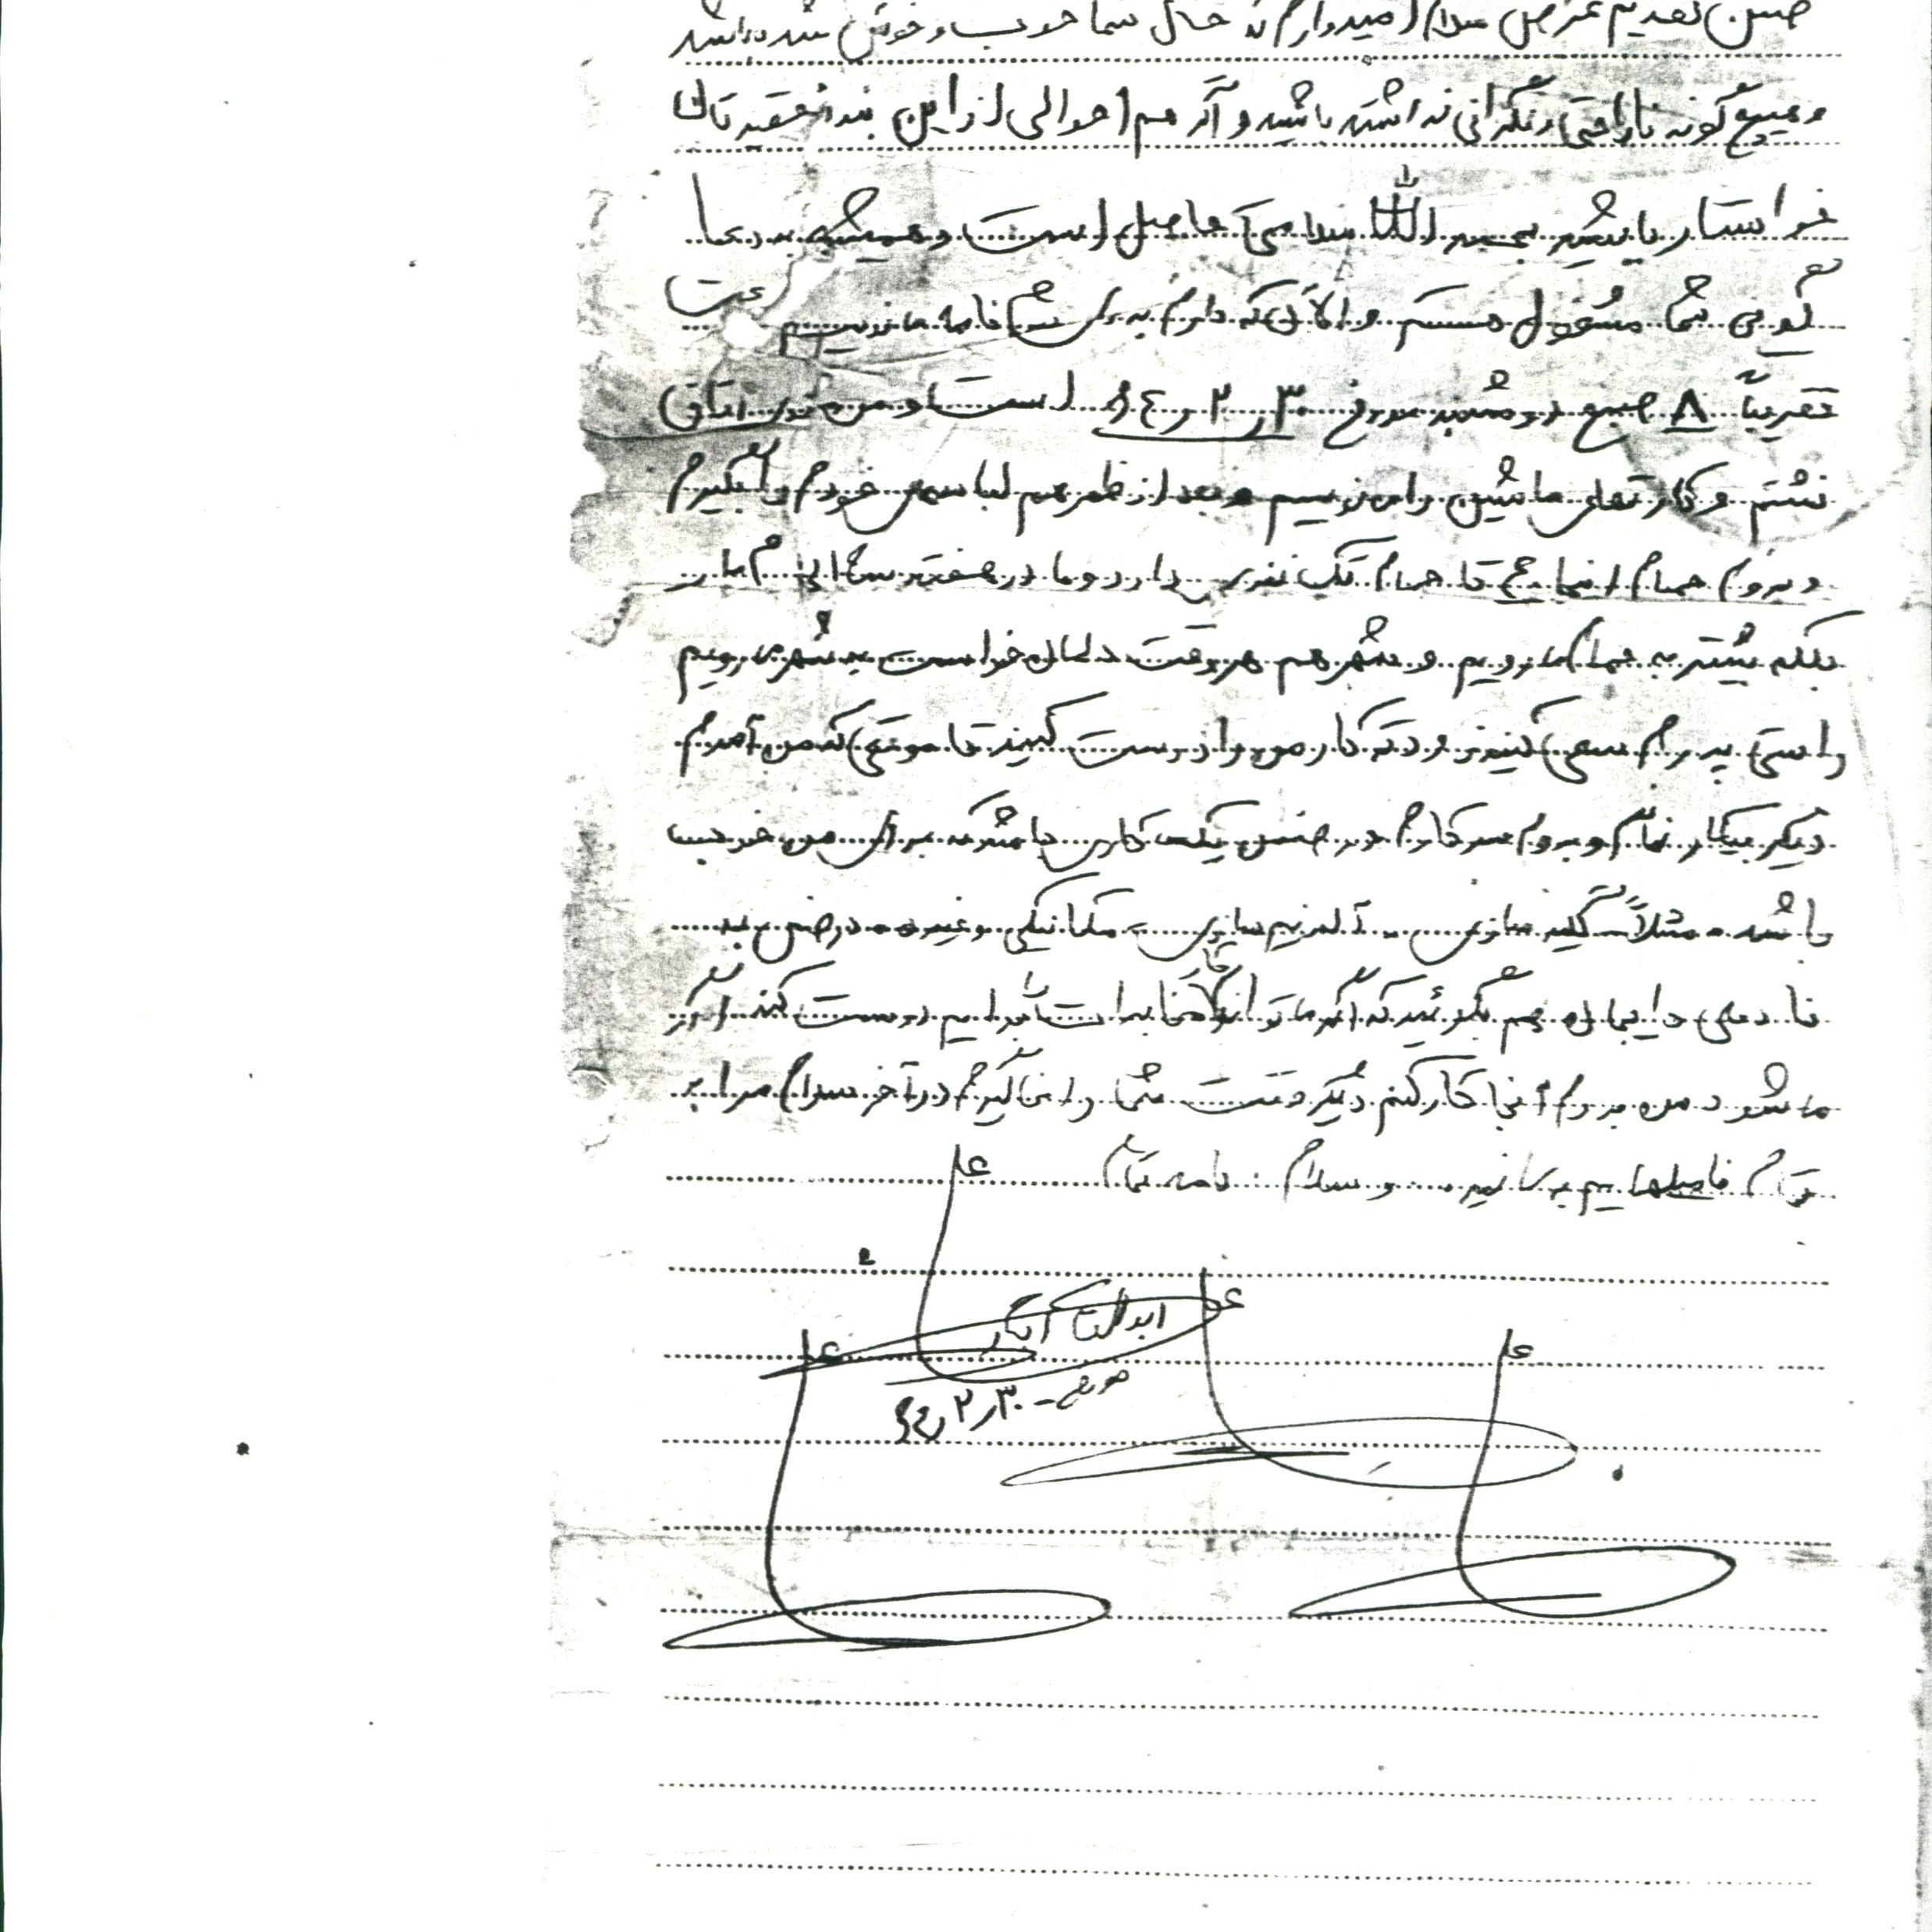 ضمن تقدیم عرض سلام امیدوارم که حال شما خوب و خوش باشد
و هیچ گونه ناراحتی و نگرانی نداشته باشید و اگر هم احوالی از این بنده حقیر
خواستار باشید بحمد الله سلامتی حاصل است و همیشه به دعا
گویی شما مشغول هستم و الآن که دارم برای شما نامه می نویسم ساعت
تقریباً ۸ صبح دوشنبه مورخ ۳۰ر۲ر۶٤ است و من در اتاق
نشتم و ماشین را می نویسم و بعد از ظهر هم لباسهای خودم را بگیرم
و بروم حمام اینجا حمام تک نفری دارد و ما در هفته
بلکه بیشتر به حمام می رویم و شهر هم هر وقت دلمان خواست به شهر می رویم
راستی پدرم سعی کنید کار من را درست کنید تا موقعی که من آمدم
دیگر بیکار نمانم و بروم سر کارم در ضمن یک کاری باشد که برای من خوب
باشد مثلاً کلید سازی آلمنیم سازی مکانیکی و غیره در ضمن به
دایجان هم بگوئید که اگر می تواند درست کند اگر
می شود من بروم آنجا کار کنم دیگر وقت شما را نمی گیرم در آخر سلام مرا به
تمام فامیلهایم برسانید و سلام نامه تمام
ابوالقاسم
مورخ - ۳۰ر۲ر۶٤